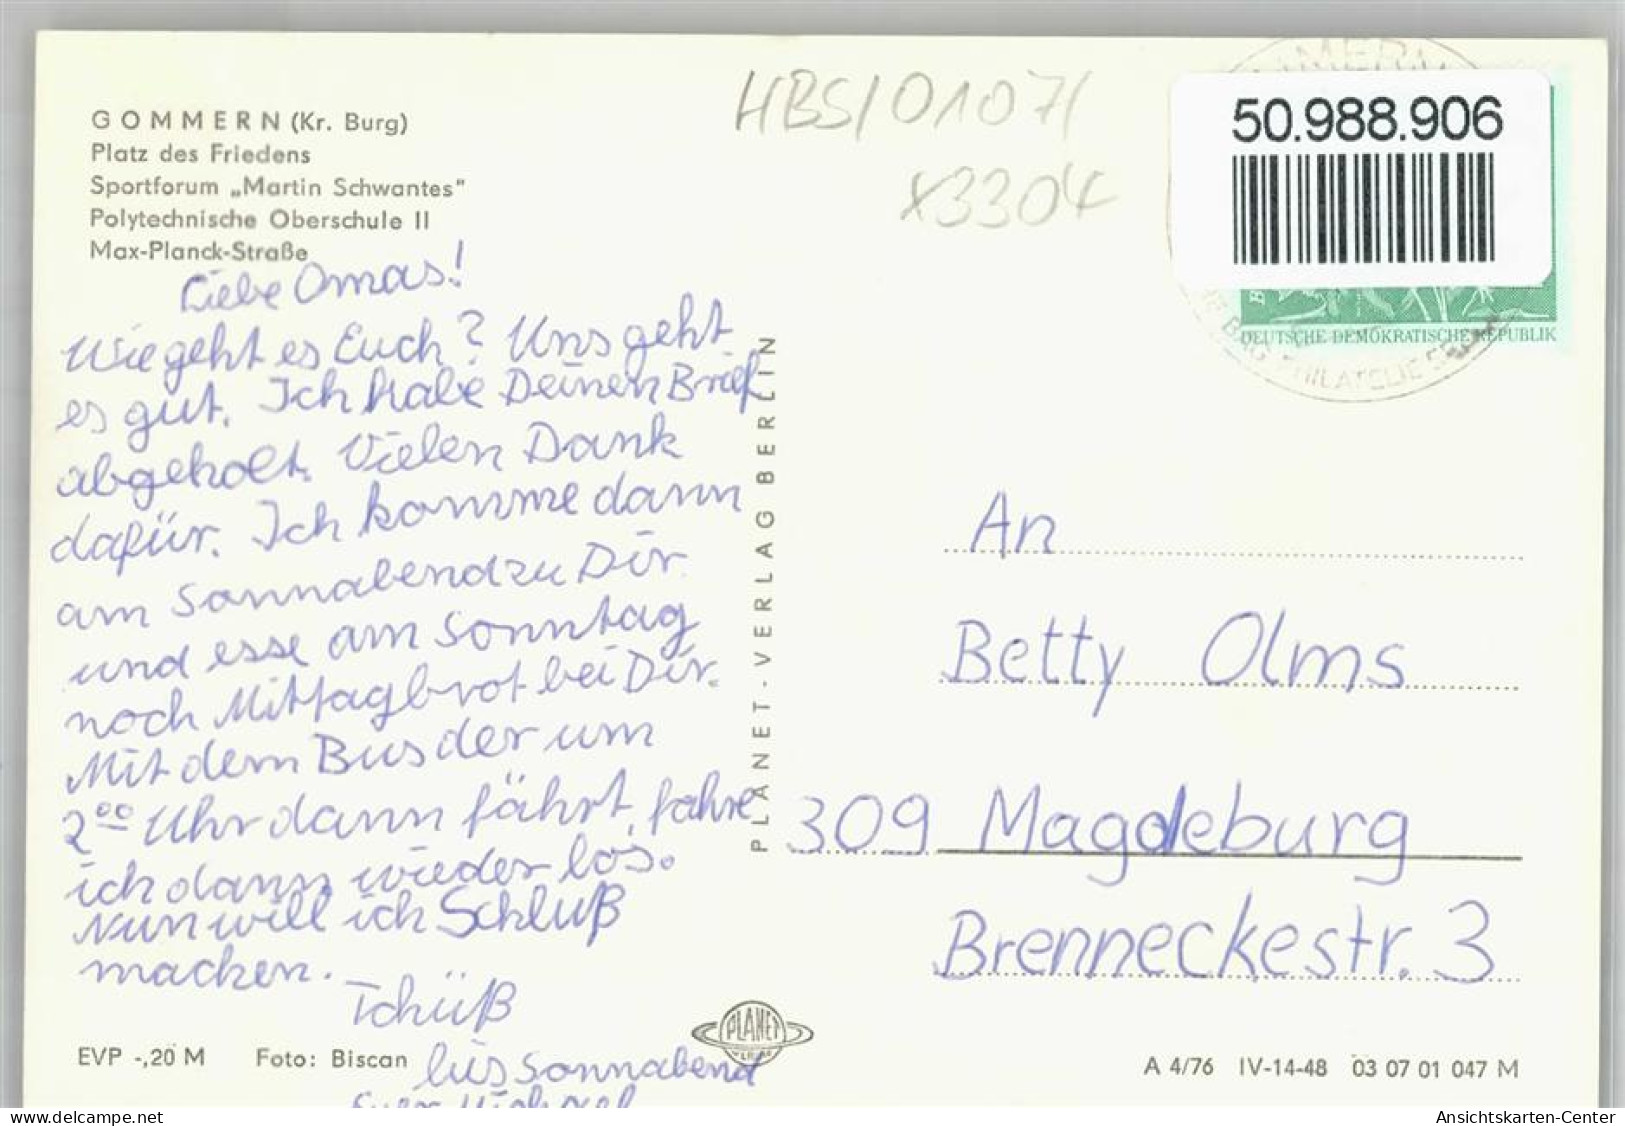 GOMMERN (Kr. Burg)
Platz des Friedens
Sportforum „Martin Schwantes"
Polytechnische Oberschule II
Max-Planck-Straße
HBS/0107/
x3304
50.988.906
DEUTSCHE DEMOKRATISCHE REPUBLIK
PHILATELIE
Liebe Omas!
Wie geht es Euch? Uns geht
es gut. Ich habe Deinen Brief
abgeholt. Vielen Dank
dafür. Ich komme dann
am Sonnabend zu Dir
und esse am Sonntag
noch Mittagbrot bei Dir.
Mit dem Bus der um
2⁰⁰ Uhr dann fährt, fahre
ich dann wieder los.
Nun will ich Schluß
machen.
Tchüß
bis Sonnabend
Euer Michael
PLANET-VERLAG BERLIN
An
Betty Olms
309 Magdeburg
Brenneckestr. 3
PLANET
VERLAG
EVP -,20 M Foto: Biscan
A 4/76 IV-14-48 03 07 01 047 M
www.delcampe.net
Ansichtskarten-Center